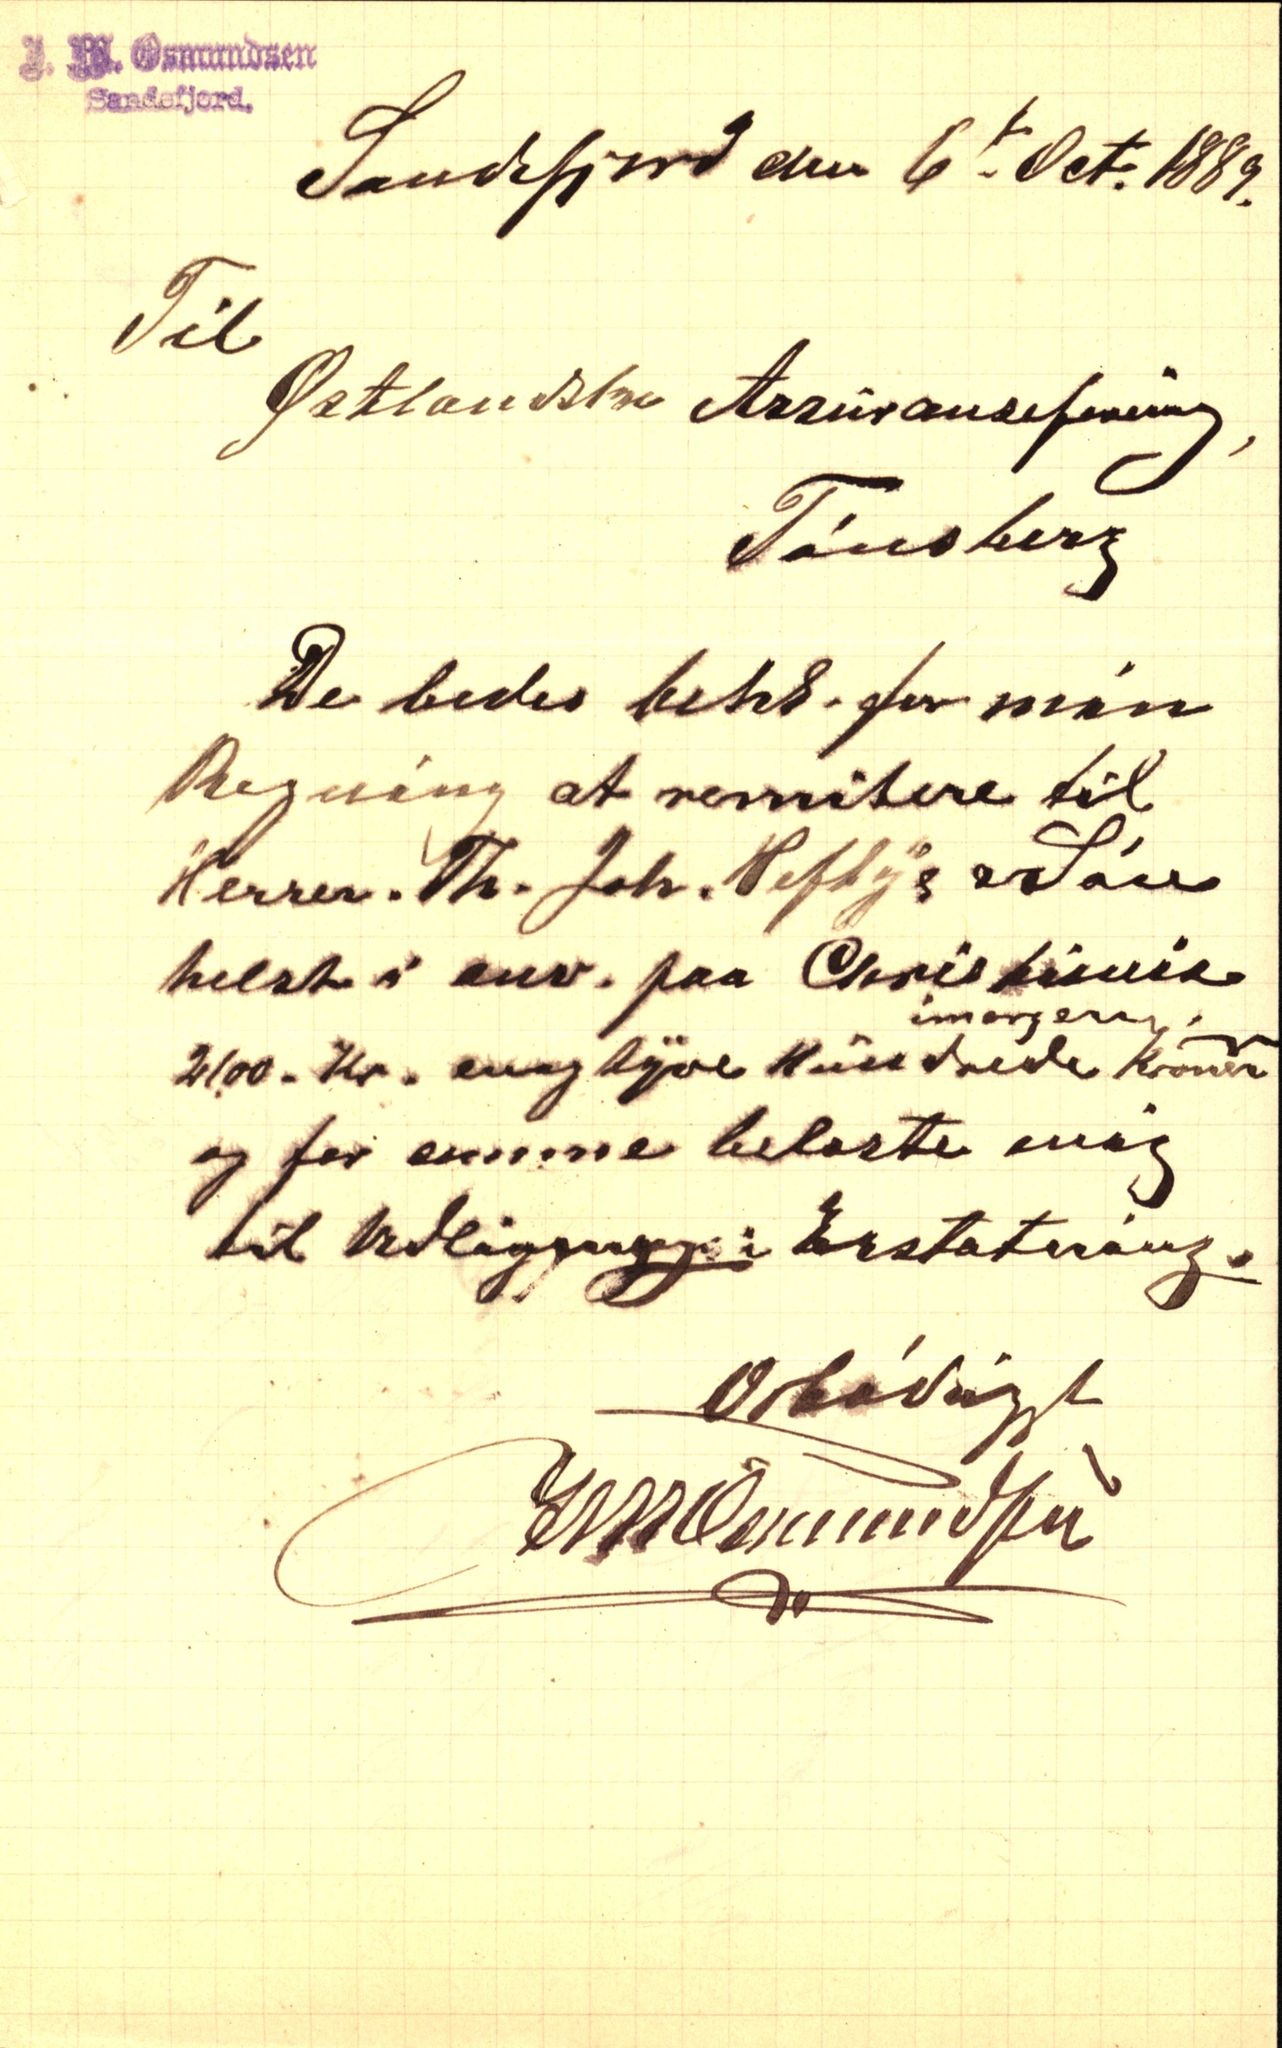 J. M. Osmundsen
Sandefjord.
Sandefjord den 6t. Oct. 1889.
Til
Østlandske Assuranceforening,
Tönsberg
De bedes behd. for min
Regning at remitere til
Herrer. Th. Joh. Heftÿe & Sön
helst i anv. paa Christiania
imorgen,
2100. Kr. enogtÿve Hundrede Kroner
og for samme belaste mig
til Udligning i Erstatning.
Ærbödigst
J M Osmundsen